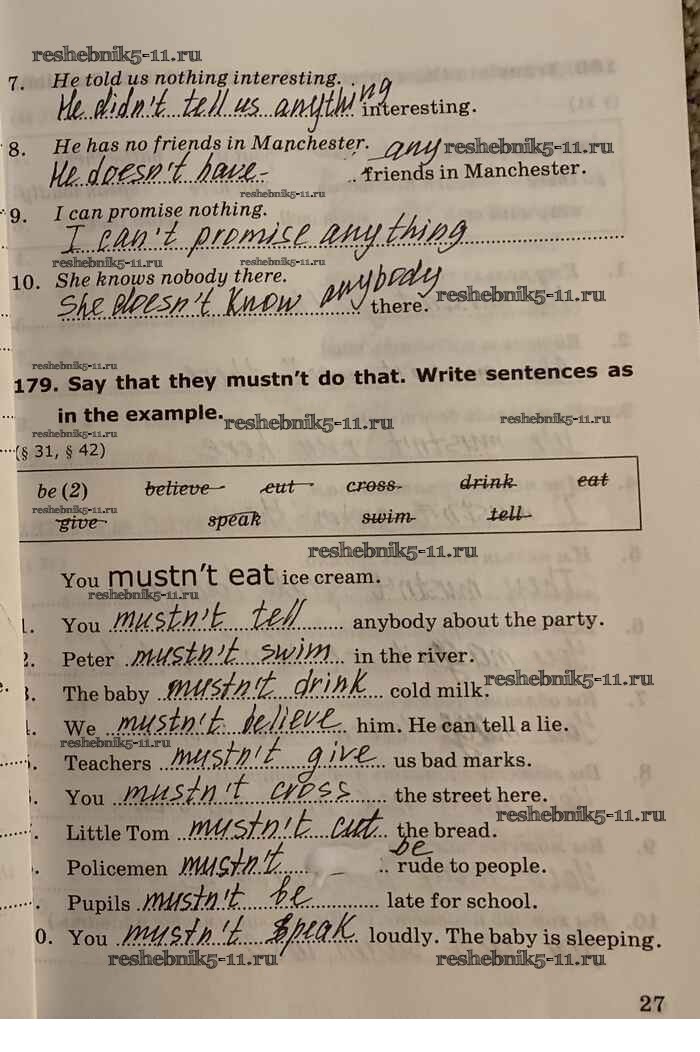 reshebnik5-11.ru
7. He told us nothing interesting.
He didn't tell us anything interesting.
8. He has no friends in Manchester.
any reshebnik5-11.ru
He doesn't have friends in Manchester.
reshebnik5-11.ru
9. I can promise nothing.
I can't promise anything
reshebnik5-11.ru reshebnik5-11.ru
10. She knows nobody there.
She doesn't know anybody there.
reshebnik5-11.ru
reshebnik5-11.ru
179. Say that they mustn't do that. Write sentences as
in the example.
reshebnik5-11.ru reshebnik5-11.ru
reshebnik5-11.ru
(§ 31, § 42)
be (2) believe cut cross drink eat
reshebnik5-11.ru
give speak swim tell
reshebnik5-11.ru
You mustn't eat ice cream.
reshebnik5-11.ru
1. You mustn't tell anybody about the party.
2. Peter mustn't swim in the river.
3. The baby mustn't drink cold milk.
reshebnik5-11.ru
We mustn't believe him. He can tell a lie.
reshebnik5-11.ru
Teachers mustn't give us bad marks.
You mustn't cross the street here.
reshebnik5-11.ru
Little Tom mustn't cut the bread.
Policemen mustn't be rude to people.
Pupils mustn't be late for school.
0. You mustn't speak loudly. The baby is sleeping.
reshebnik5-11.ru reshebnik5-11.ru
27